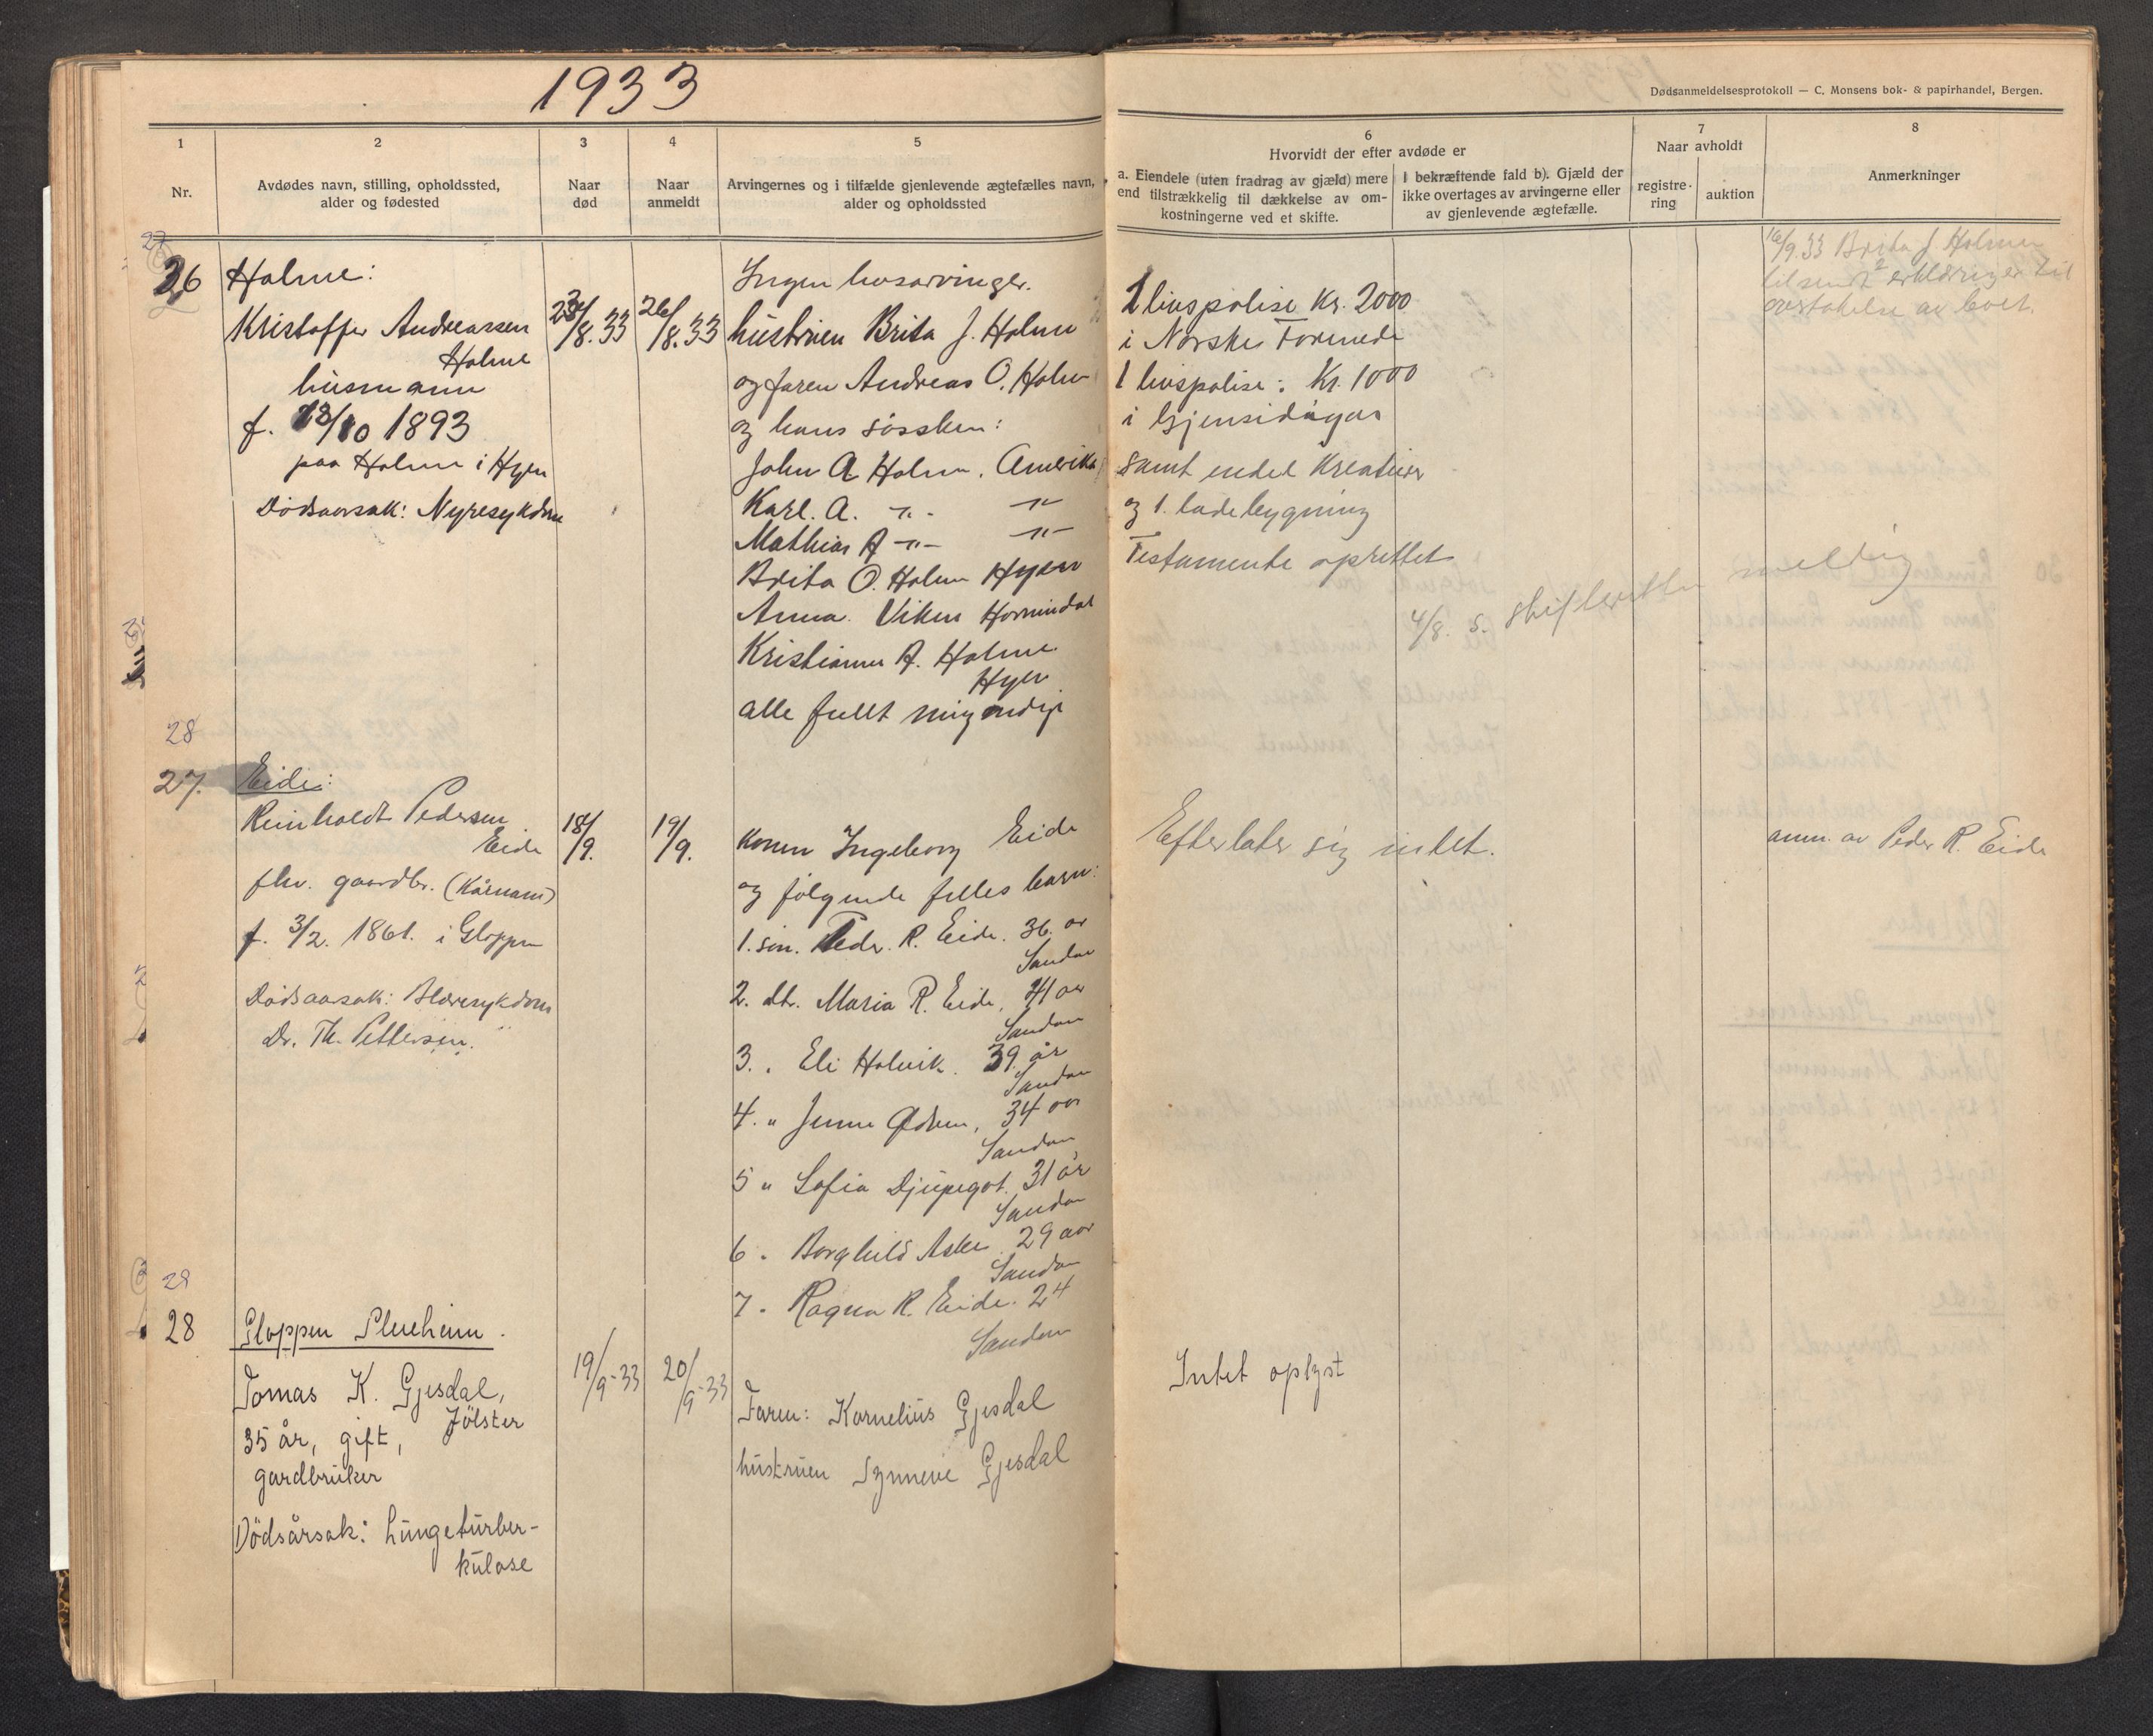 1933
Dødsanmeldelsesprotokoll — C. Monsens bok- & papirhandel, Bergen.
1
Nr.
2
Avdødes navn, stilling, opholdssted,
alder og fødested
3
Naar
død
4
Naar
anmeldt
5
Arvingernes og i tilfælde gjenlevende ægtefælles navn,
alder og opholdssted
6
Hvorvidt der efter avdøde er
a. Eiendele (uten fradrag av gjæld) mere
end tilstrækkelig til dækkelse av om-
kostningerne ved et skifte.
I bekræftende fald b). Gjæld der
ikke overtages av arvingerne eller
av gjenlevende ægtefælle.
7
Naar avholdt
registre-
ring
auktion
8
Anmerkninger
27
26
Holme:
Kristoffer Andreassen
Holme
husmann
f. 13/10 1893
paa Holme i Hyen
Dödsaarsak: Nyresykdom
23/8.33
26/8.33
Ingen livsarvinger.
hustruen Brita J. Holme
og faren Andreas O. Holme
og hans søssken:
John A Holme. Amerika
Karl. A. -"- -"-
Mathias A -"- -"-
Brita O. Holme Hyen
Anna. Viken Hornindal
Kristianna A. Holme
Hyen
alle fullt myndige
1 livspolise Kr. 2000
i Norske Forenede
1 livspolise: Kr. 1000
i Gjensidigar
samt endel Kreaturer
og 1. ladebygning
Testamente oprettet
4/8. s. skifteretten melding
16/9.33 Brita J. Holmen
tilsendt 2 erklæringer til
overtakelse av boet.
28
27.
Eide:
Reinholdt Pedersen
Eide
fhv. gaardbr. (Kårmann)
f. 3/2. 1861. i Gloppen
Dødsaarsak: Blæresykdom
Dr. Th. Pettersen.
18/9.
19/9.
Konen Ingeborg Eide
og følgende felles barn:
1. sön. Peder. R. Eide. 36. år
Sandane
2. dtr. Maria R. Eide, 41 aar
Sandane
3. " Eli Holvik. 39. år
Sandane
4. " Jenne Ødven, 34 aar
Sandane
5 " Sofia Djupegot. 31 år
Sandane
6 " Borghild Aske 29 aar
Sandane
7. Ragna R. Eide. 24
Sandane
Efterlater sig intet.
anm. av Peder R. Eide
29
28
Gloppen Pleieheim.
Tomas K. Gjesdal,
Jölster
35 år, gift,
gardbruker
Dödsårsak: Lungeturber-
kulose
19/9-33
20/9-33
Faren: Kornelius Gjesdal
hustruen Synneve Gjesdal
Intet oplyst